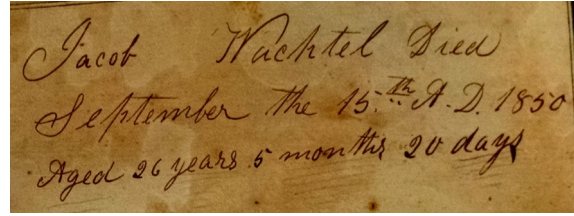 Jacob Wachtel Died
September the 15.th A.D. 1850
Aged 26 years 5 months 20 days